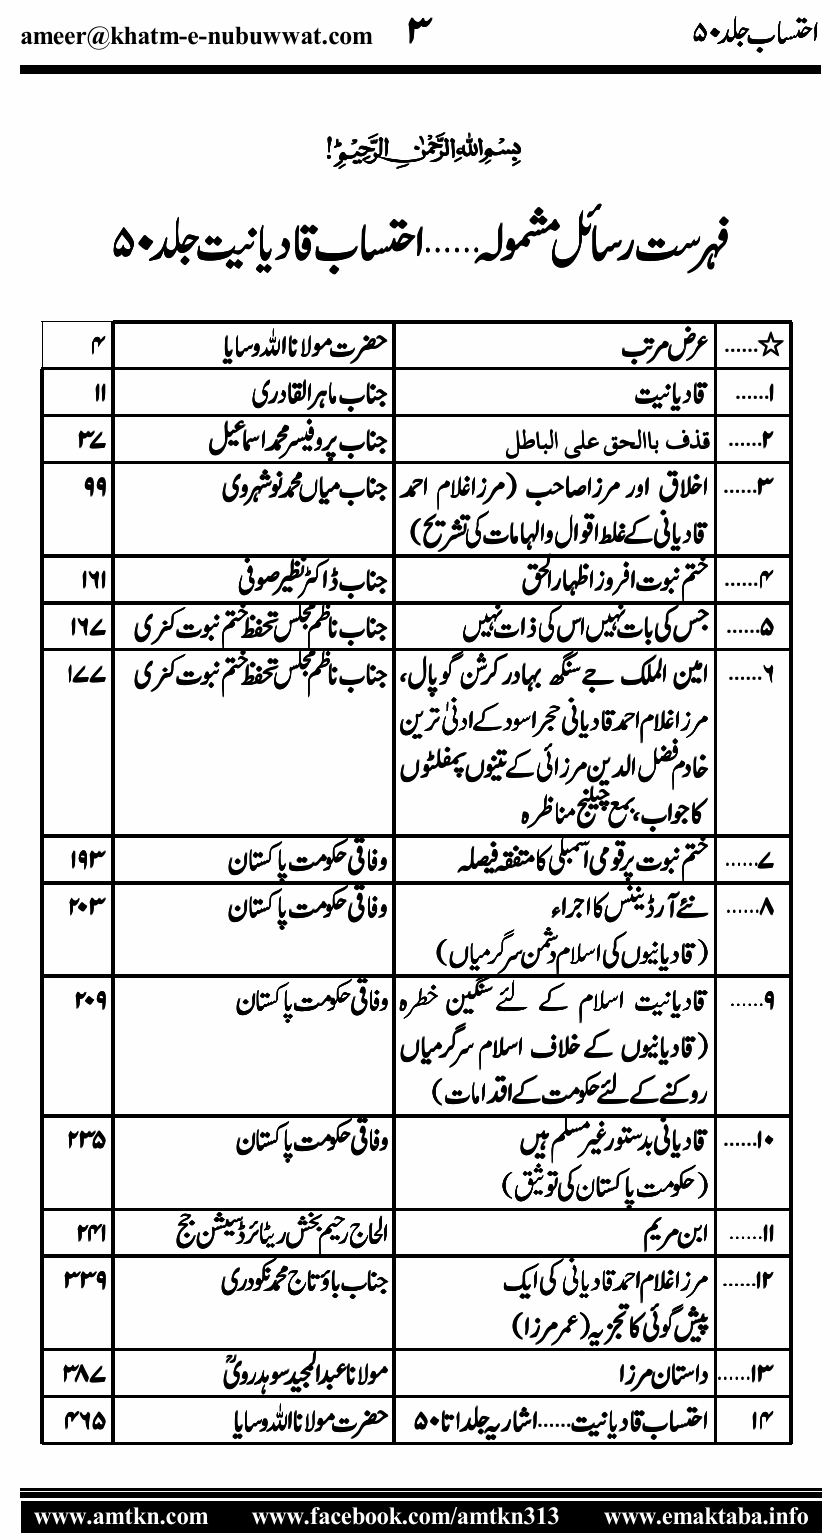 احتساب جلد۵۰ ۳ ameer@khatm-e-nubuwwat.com
بسم اللہ الرحمٰن الرحیم!
فہرست رسائل مشمولہ......احتساب قادیانیت جلد۵۰
☆...... عرض مرتب حضرت مولانا اللہ وسایا ۴
۱...... قادیانیت جناب ماہر القادری ۱۱
۲...... قذف باالحق علی الباطل جناب پروفیسر محمد اسماعیل ۳۷
۳...... اخلاق اور مرزا صاحب (مرزا غلام احمد جناب میاں محمد نوشہروی ۹۹
قادیانی کے غلط اقوال والہامات کی تشریح)
۴...... ختم نبوت افروز اظہار الحق جناب ڈاکٹر نظیر صوفی ۱۶۱
۵...... جس کی بات نہیں اس کی ذات نہیں جناب ناظم مجلس تحفظ ختم نبوت کنری ۱۶۷
۶...... امین الملک جے سنگھ بہادر کرشن گوپال، جناب ناظم مجلس تحفظ ختم نبوت کنری ۱۷۷
مرزا غلام احمد قادیانی حجر اسود کے ادنیٰ ترین
خادم فضل الدین مرزائی کے تینوں پمفلٹوں
کا جواب، بمع چیلنج مناظرہ
۷...... ختم نبوت پر قومی اسمبلی کا متفقہ فیصلہ وفاقی حکومت پاکستان ۱۹۳
۸...... نئے آرڈیننس کا اجراء وفاقی حکومت پاکستان ۲۰۳
(قادیانیوں کی اسلام دشمن سرگرمیاں)
۹...... قادیانیت اسلام کے لئے سنگین خطرہ وفاقی حکومت پاکستان ۲۰۹
(قادیانیوں کے خلاف اسلام سرگرمیاں
روکنے کے لئے حکومت کے اقدامات)
۱۰...... قادیانی بدستور غیر مسلم ہیں وفاقی حکومت پاکستان ۲۳۵
(حکومت پاکستان کی توثیق)
۱۱...... ابن مریم الحاج رحیم بخش ریٹائرڈ سیشن جج ۲۴۱
۱۲...... مرزا غلام احمد قادیانی کی ایک جناب باؤ تاج محمد نکودری ۳۳۹
پیش گوئی کا تجزیہ (عمر مرزا)
۱۳...... داستان مرزا مولانا عبدالمجید سوہدرویؒ ۳۸۷
۱۴ احتساب قادیانیت......اشاریہ جلد ۱ تا ۵۰ حضرت مولانا اللہ وسایا ۴۶۵
www.amtkn.com www.facebook.com/amtkn313 www.emaktaba.info